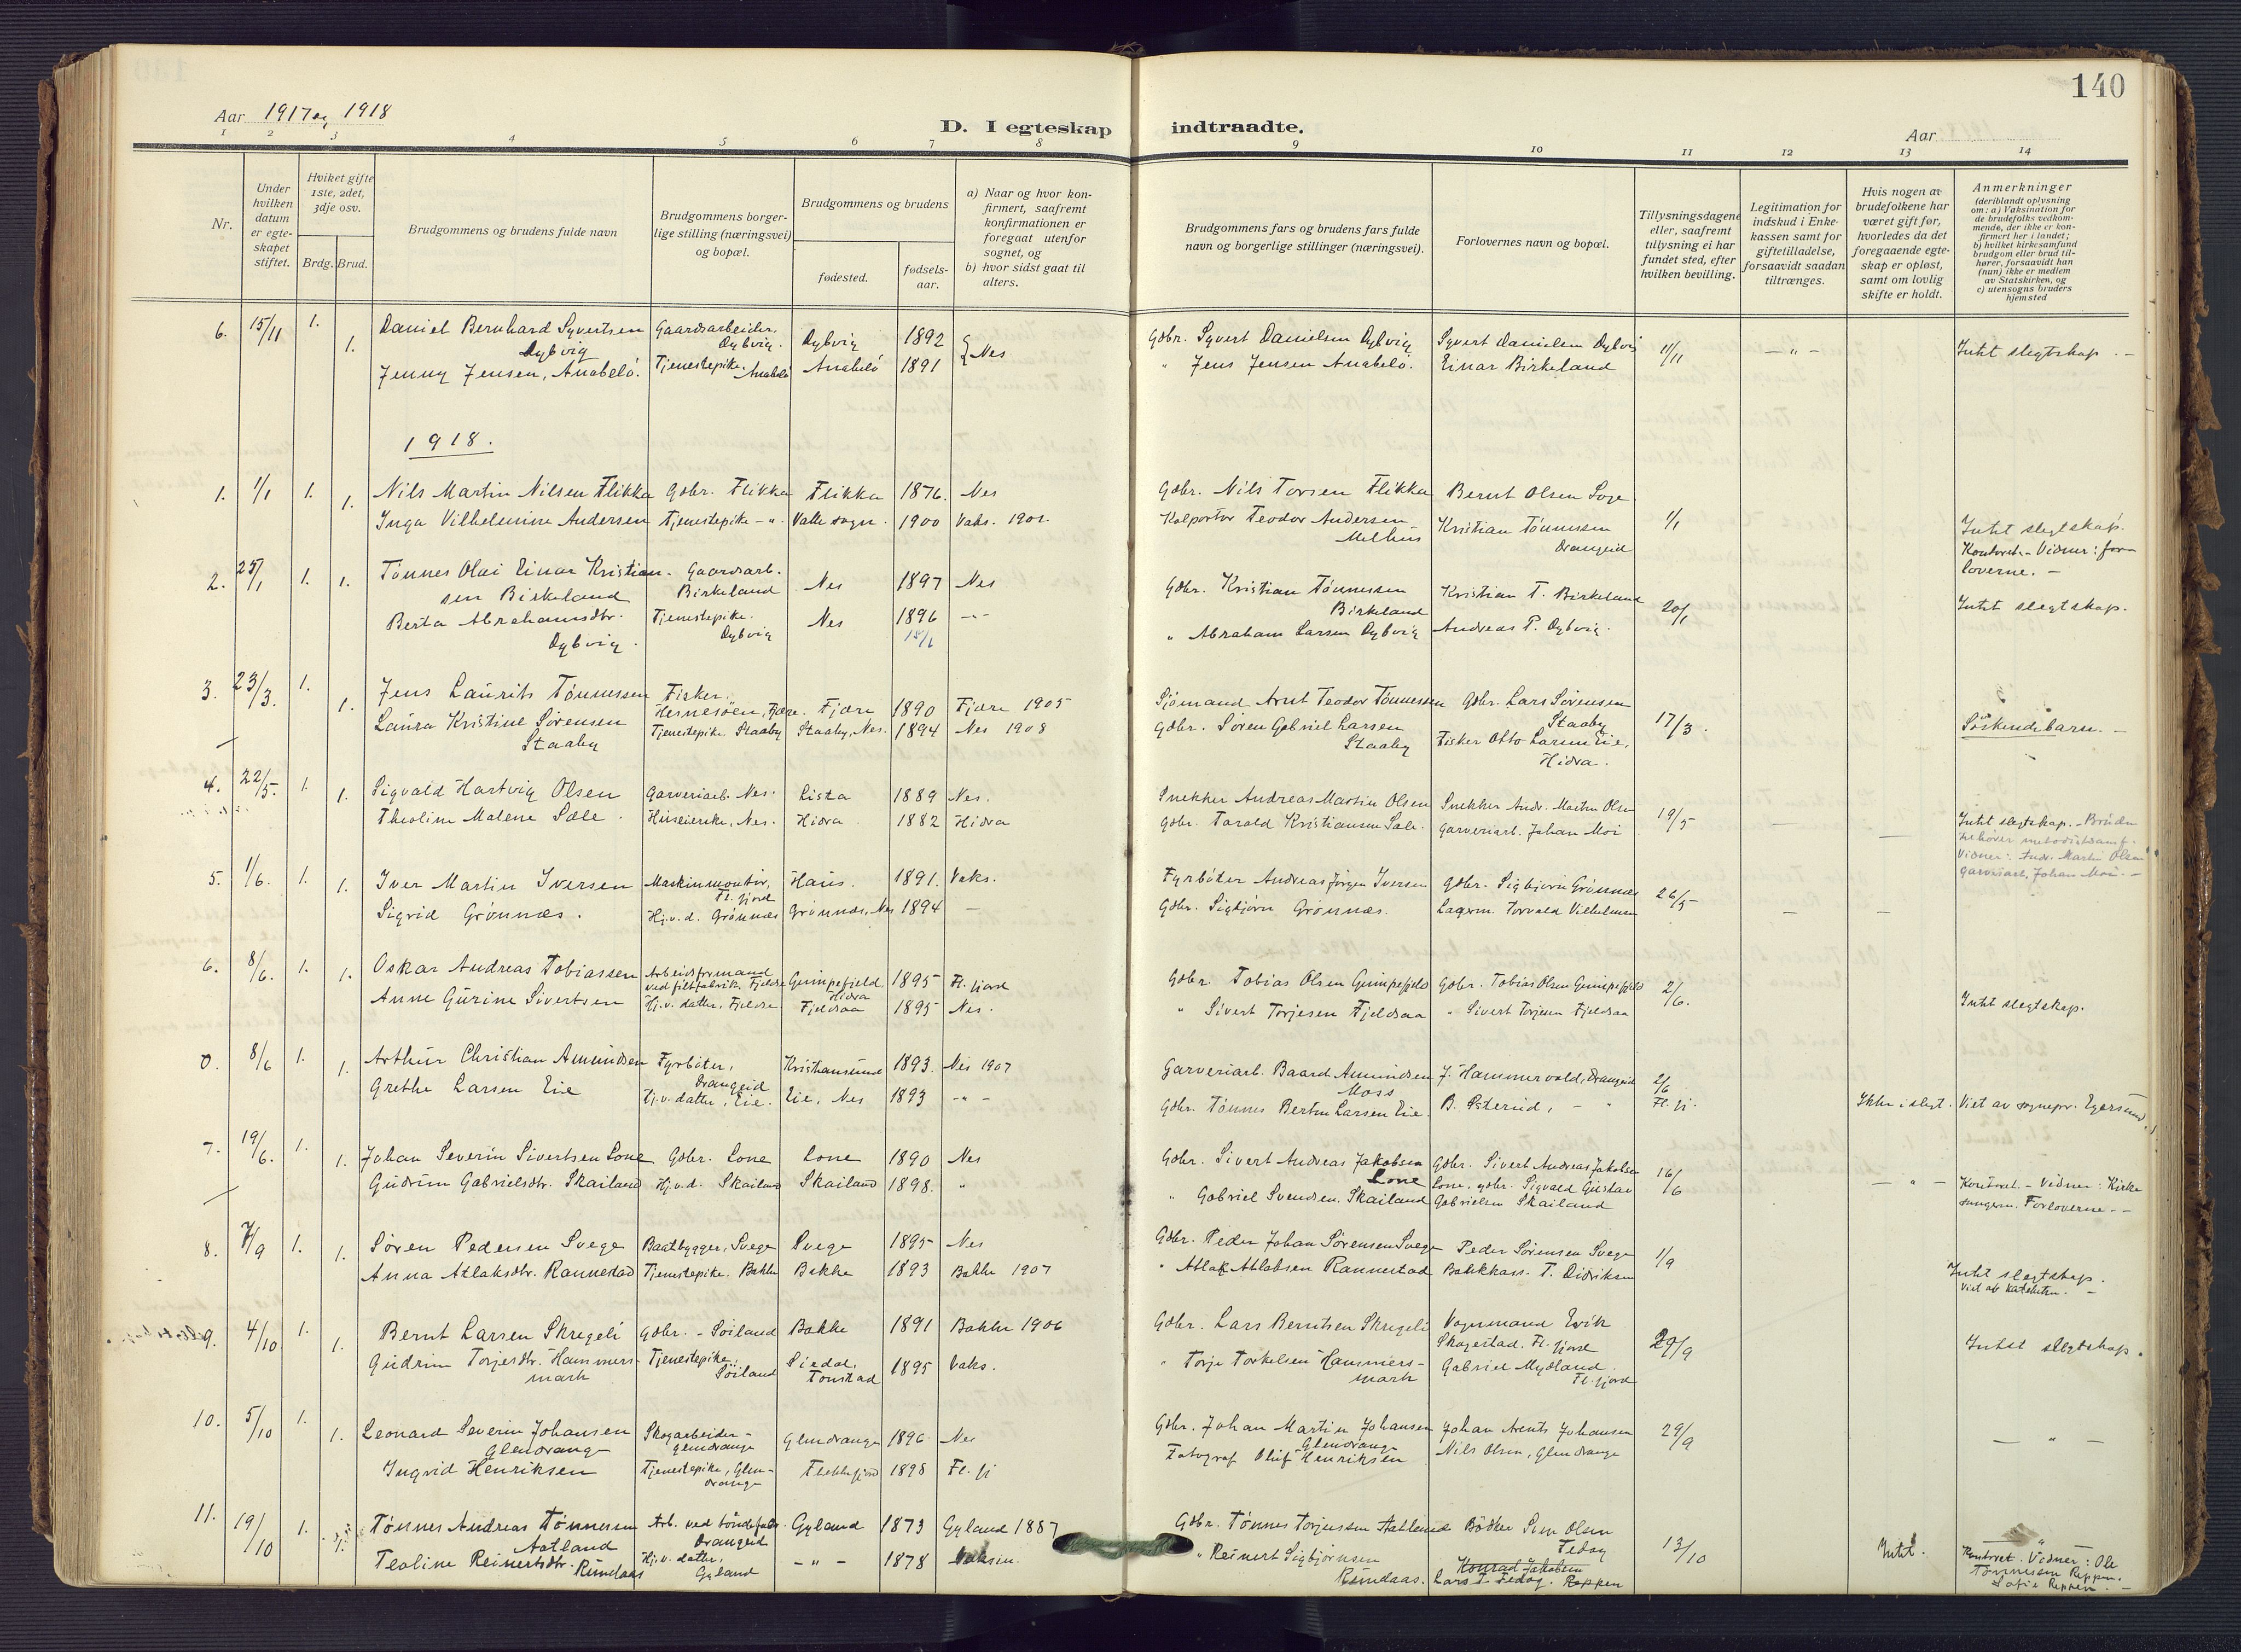 140
Aar 1917 og 1918
D. I egteskap indtraadte.
Aar
1 2 3 4 5 6 7 8 9 10 11 12 13 14
Nr.
Under hvilken datum er egteskapet stiftet.
Hviket gifte 1ste, 2det, 3dje osv.
Brdg. Brud.
Brudgommens og brudens fulde navn
Brudgommens borgerlige stilling (næringsvei) og bopæl.
Brudgommens og brudens
fødested.
fødselsaar.
a) Naar og hvor konfirmert, saafremt konfirmationen er foregaat utenfor sognet, og
b) hvor sidst gaat til alters.
Brudgommens fars og brudens fars fulde navn og borgerlige stillinger (næringsvei).
Forlovernes navn og bopæl.
Tillysningsdagene eller, saafremt tillysning ei har fundet sted, efter hvilken bevilling.
Legitimation for indskud i Enkekassen samt for giftetilladelse, forsaavidt saadan tiltrænges.
Hvis nogen av brudefolkene har været gift før, hvorledes da det foregaaende egteskap er opløst, samt om lovlig skifte er holdt.
Anmerkninger (deriblandt oplysning om: a) Vaksination for de brudefolks vedkommende, der ikke er konfirmert her i landet; b) hvilket kirkesamfund brudgom eller brud tilhører, forsaavidt han (hun) ikke er medlem av Statskirken, og c) utensogns bruders hjemsted
6. 15/11 1. Daniel Bernhard Syvertsen Dybvig Gaardsarbeider, Dybvig. Dybvig 1892 Nes Gdbr. Syvert Danielsen Dybvig Syvert Danielsen Dybvig 11/11 — " — Intet slegtskap. —
1. Jenny Jensen, Anabelø. Tjenestepike. Anabelø Anabelø 1891 " Jens Jensen Anabelø. Einar Birkeland
1918.
1. 1/1 1. Nils Martin Nilsen Flikka Gdbr. Flikka Flikka 1876. Nes Gdbr. Nils Torsen Flikka Bernt Olsen 1/1
1. Inga Vilhelmine Andersen Tjenestepike - " - Valle sogn. 1900 Vaks. Kolportør Teodor Andersen Melhus Kristian Tønnessen Drangeid Intet slegtskap. Kontoret. - Vidner: forloverne. —
2. 25/1 1. Tønnes Olai Einar Kristiansen Birkeland Gaardsarb. Birkeland Nes 1897 Nes Gdbr. Kristian Tønnessen Birkeland Kristian T. Birkeland 20/1 Intet slegtskap.
1. Berta Abrahamsdtr. Dybvig. Tjenestepike. Dybvig Nes 1896 -"- " Abraham Larsen Dybvig Andreas P. Dybvig.
3. 23/3. 1. Jens Laurits Tønnessen Fisker, Hesnesøen, Fjære. Fjære 1890 Fjære 1905 Sjømand Arnt Teodor Tønnessen Gdbr. Lars Sørensen Staaby 17/3. Søskendebarn. —
1. Laura Kristine Sørensen Staaby Tjenestepike Staaby Staaby, Nes. 1894 Nes 1908 Gdbr. Søren Gabriel Larsen Staaby Fisker Otto Larsen Eie, Hidra.
4. 22/5. 1. Sigvald Hartvig Olsen Garveriarb. Nes. Lista 1889 Nes. Snekker Andreas Martin Olsen Snekker Andr. Martin Olsen 19/5 — —
1. Theoline Malene Sæle. Huseierske, Nes. Hidra 1882 Hidra Gdbr. Tarald Kristiansen Sæle. Garveriarb. Johan Moi Intet slegtskap. - Bruden tilhører metodistsamf. Vidner: Andr. Martin Olsen garveriarb, Johan Moi. —
5. 1/6. 1. Iver Martin Iversen Maskinmontør, Fl.fjord Haus. 1891. Vaks. Fyrbøter Andreas Jørgen Iversen Gdbr. Sigbjørn Grønnæs 26/5 — —
1. Sigrid Grønnæs. Hj.v.d. Grønnæs Grønnæs, Nes 1894 — Gdbr. Sigbjørn Grønnæs. Lagerm. Torvald Vilhelmsen
6. 8/6. 1. Oskar Andreas Tobiassen Arbeidsformand ved filtfabrik, Fjeldsæ Gumpefjeld Hidra 1895 Fl.fjord Gdbr. Tobias Olsen Gumpefjeld Gdbr. Tobias Olsen Gumpefjeld 2/6. Intet slegtskap.
1. Anne Gurine Sivertsen Hj.v. datter, Fjeldsæ Fjeldsaa 1895 Nes. " Sivert Torjesen Fjeldsaa " Sivert Torjesen Fjeldsaa
0. 8/6 1. Arthur Christian Amundsen Fyrbøter, Drangeid Kristiansund 1893. Nes 1907 Garveriarb. Baard Amundsen Moss J. Hammervold, Drangeid 2/6 Fl.fj.
1. Grethe Larsen Eie Hj.v. datter, Eie. Eie, Nes 1893 -"- Gdbr. Tønnes Bertin Larsen Eie. B. Østerud, - " Ikke i slegt. Viet av sognepr. Egersund.
7. 19/6. 1. Johan Severin Sivertsen Lone Gdbr. Lone Lone 1890 Nes Gdbr. Sivert Andreas Jakobsen Lone Gdbr. Sivert Andreas Jakobsen Lone, gdbr. Sigvald Gustav Gabrielsen Skailand 16/6 — " —
1. Gudrun Gabrielsdtr. Skailand Hj.v.d. Skailand Skailand 1898. " " Gabriel Svendsen Skailand Kontoret. - Vidner: Kirkesangern. Forloverne. —
8. 7/9 1. Søren Pedersen Svege Baatbygger, Svege Svege 1895 Nes Gdbr. Peder Johan Sørensen Svege Peder Sørensen Svege 1/9
1. Anna Atlaksdtr. Rannestad Tjenestepike. Bakke Bakke 1893 Bakke 1907 " Atlak Atlaksen Rannestad Bankkass. T. Didriksen Intet slegtskap. Viet av kateketen. —
9. 4/10 1. Bernt Larsen Skregeli Gdbr. - Søiland Bakke 1891 Bakke 1906 Gdbr. Lars Berntsen Skregeli Vognmand Erik Skogestad. Fl.fjord 29/9 Intet slegtskap.
1. Gudrun Torjesdtr. Hammersmark Tjenestepike, Søiland Siedal, Tonstad 1895 Vaks. " Torje Torkelsen Hammersmark Gabriel Mydland. Fl.fjord
10. 5/10 1. Leonard Severin Johansen Glendrange Skogarbeider - Glendrange Glendrange 1896 Nes Gdbr. Johan Martin Johansen Glendrange Johan Arents Johansen 29/9 — " —
1. Ingrid Henriksen Tjenestepike, Glendrange Flekkefjord 1898 Fl.fj Fotograf Oluf Henriksen Nils Olsen, Glendrange
11. 19/10 1. Tønnes Andreas Tønnesen Aatland Arb. ved tøndefabr. Drangeid Gyland 1873 Gyland 1887 Gdbr. Tønnes Torjussen Aatland Bødker Sem Olsen Fedog 13/10 Intet.
1. Teoline Reinertsdtr. Rundaas Hj.v. datter, Gyland - " - 1878 Vaksin. " Reinert Sigbjørnsen Rundaas. Konrad Jakobsen Lars T. Fedog. Reppen Kontoret. Vidner: Ole Tønnesen Reppen. Sofie Reppen. —